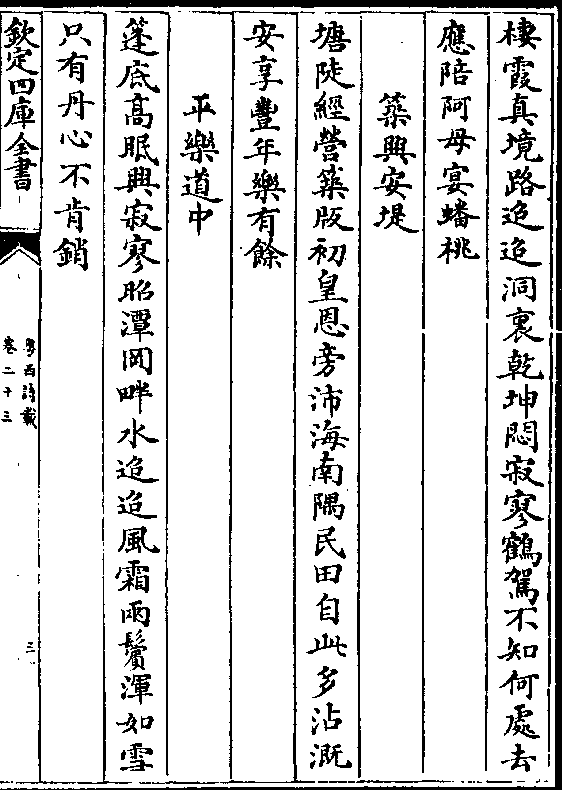 棲霞真境路迢迢洞裏乾坤悶寂寥鶴駕不知何處去
應陪阿母宴蟠桃
築興安堤
塘陡經營築版初皇恩旁沛海南隅民田自此多沾溉
安享豐年樂有餘
平樂道中
篷底高眠興寂寥昭潭岡畔水迢迢風霜兩鬢渾如雪
只有丹心不肯銷
欽定四庫全書
粤西詩載
卷二十三
三